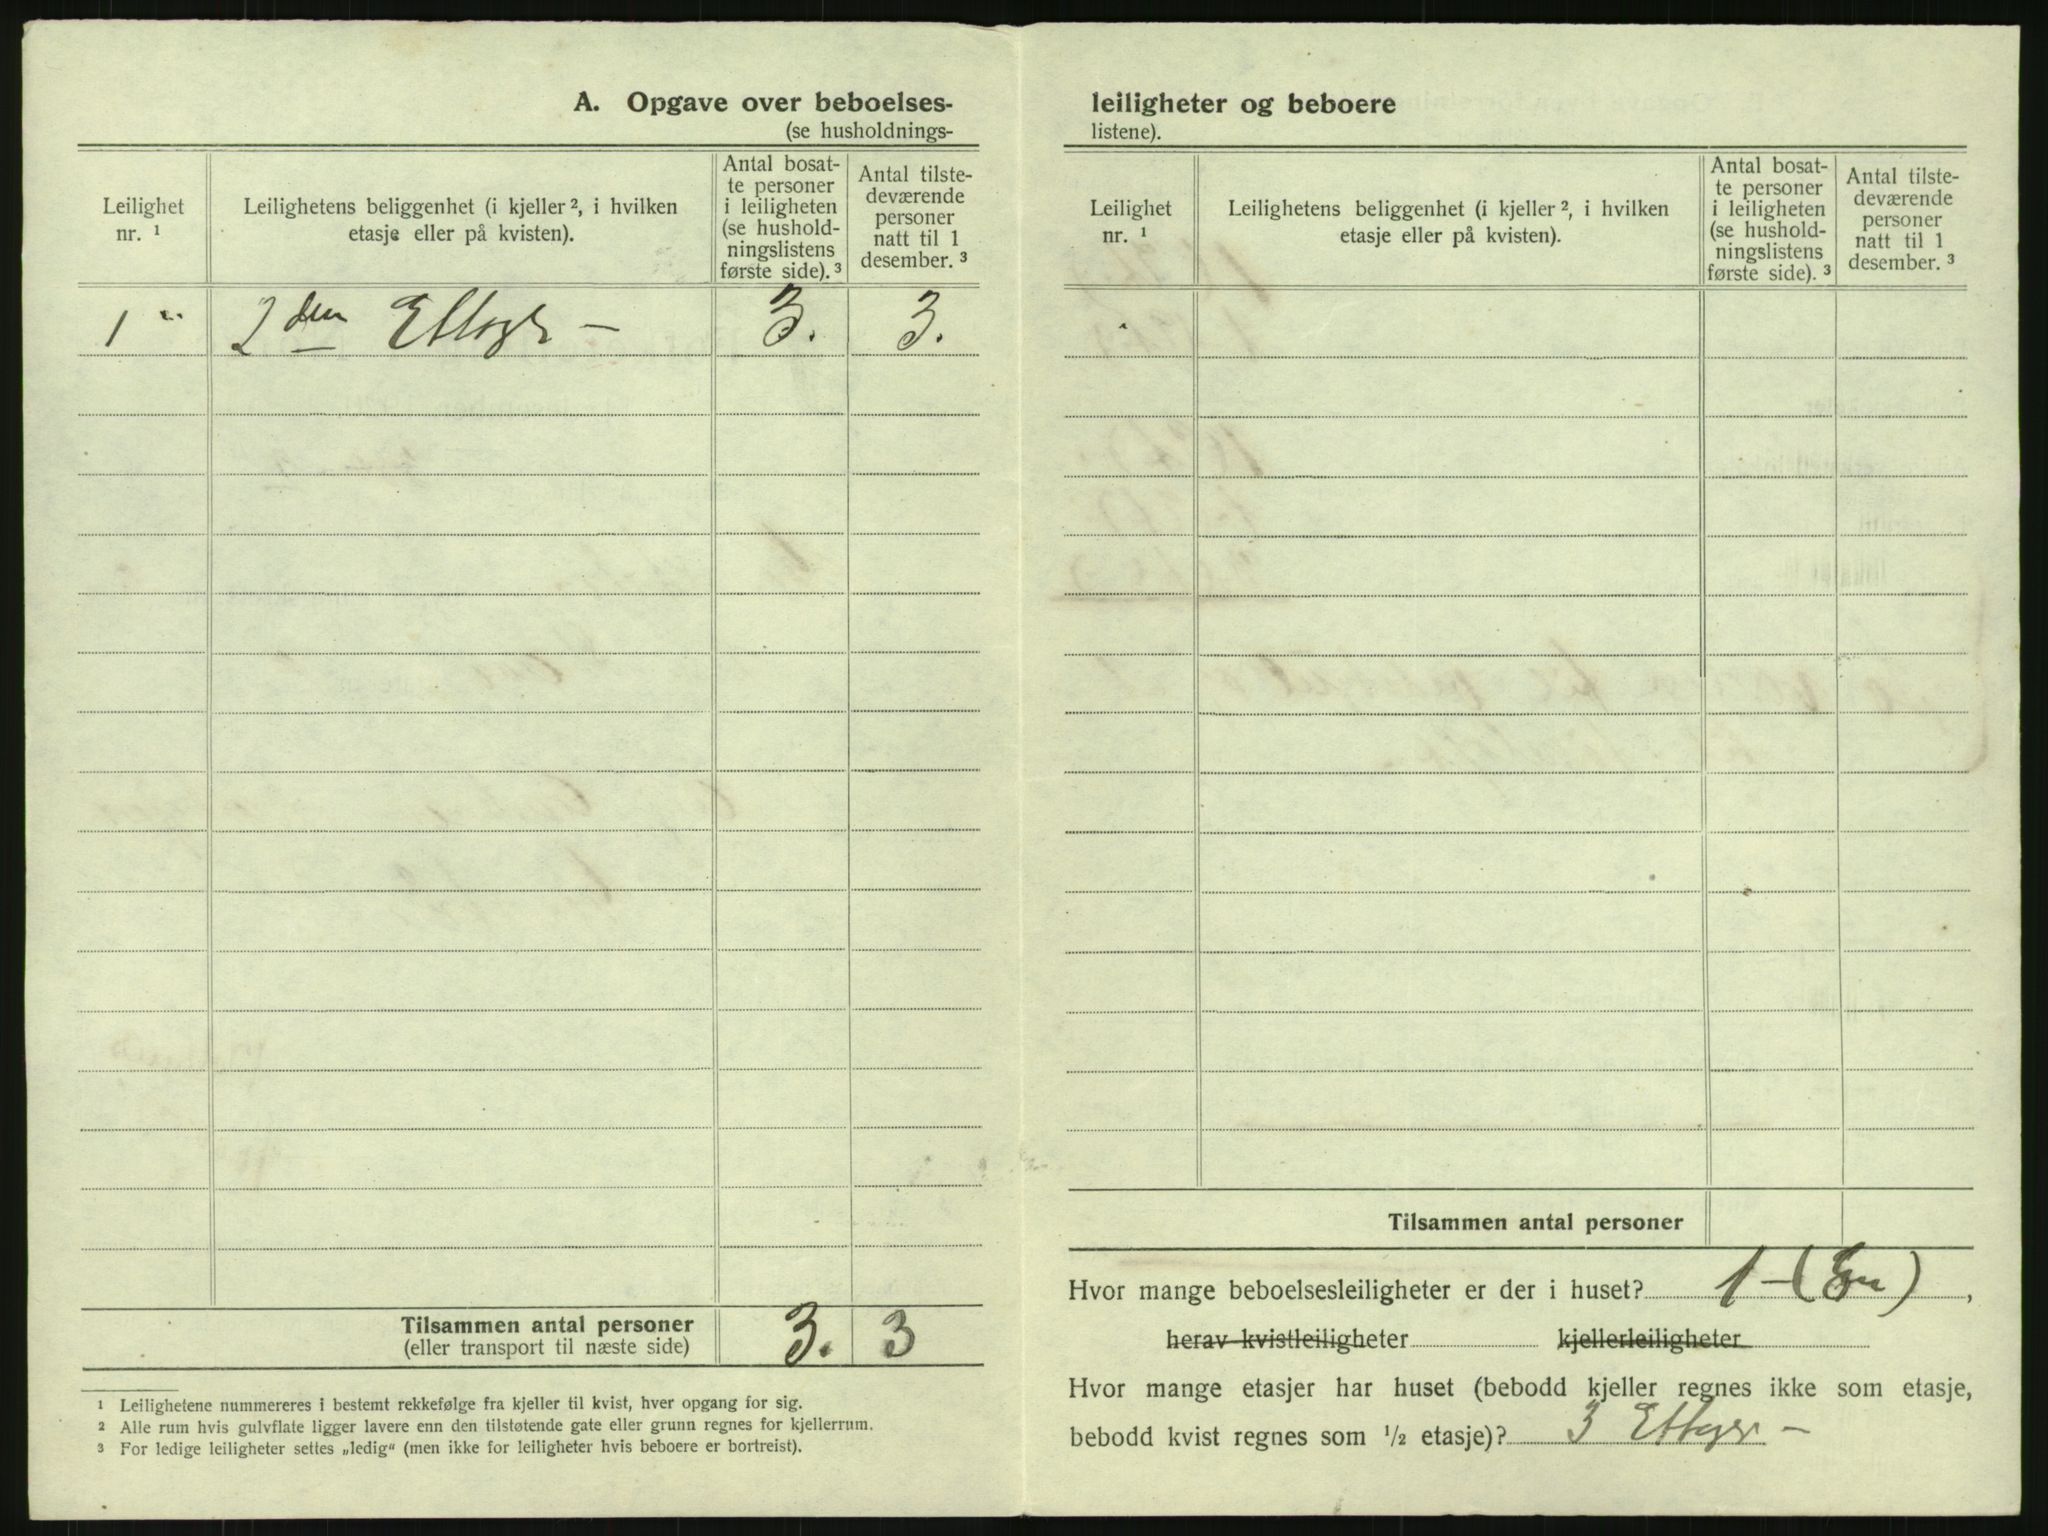 A. Opgave over beboelses-
(se husholdnings-
Leilighet nr. ¹
Leilighetens beliggenhet (i kjeller ², i hvilken etasje eller på kvisten).
Antal bosat-
te personer
i leiligheten
(se hushold-
ningslistens
første side). ³
Antal tilste-
deværende
personer
natt til 1
desember. ³
1 2den Etage – 3. 3.
Tilsammen antal personer 3. 3
(eller transport til næste side)
¹ Leilighetene nummereres i bestemt rekkefølge fra kjeller til kvist, hver opgang for sig.
² Alle rum hvis gulvflate ligger lavere enn den tilstøtende gate eller grunn regnes for kjellerrum.
³ For ledige leiligheter settes „ledig“ (men ikke for leiligheter hvis beboere er bortreist).
leiligheter og beboere
listene).
Leilighet nr. ¹
Leilighetens beliggenhet (i kjeller ², i hvilken etasje eller på kvisten).
Antal bosat-
te personer
i leiligheten
(se hushold-
ningslistens
første side). ³
Antal tilste-
deværende
personer
natt til 1
desember. ³
Tilsammen antal personer
Hvor mange beboelsesleiligheter er der i huset? 1 – (En),
herav kvistleiligheter kjellerleiligheter
Hvor mange etasjer har huset (bebodd kjeller regnes ikke som etasje,
bebodd kvist regnes som ½ etasje)? 3 Etager –